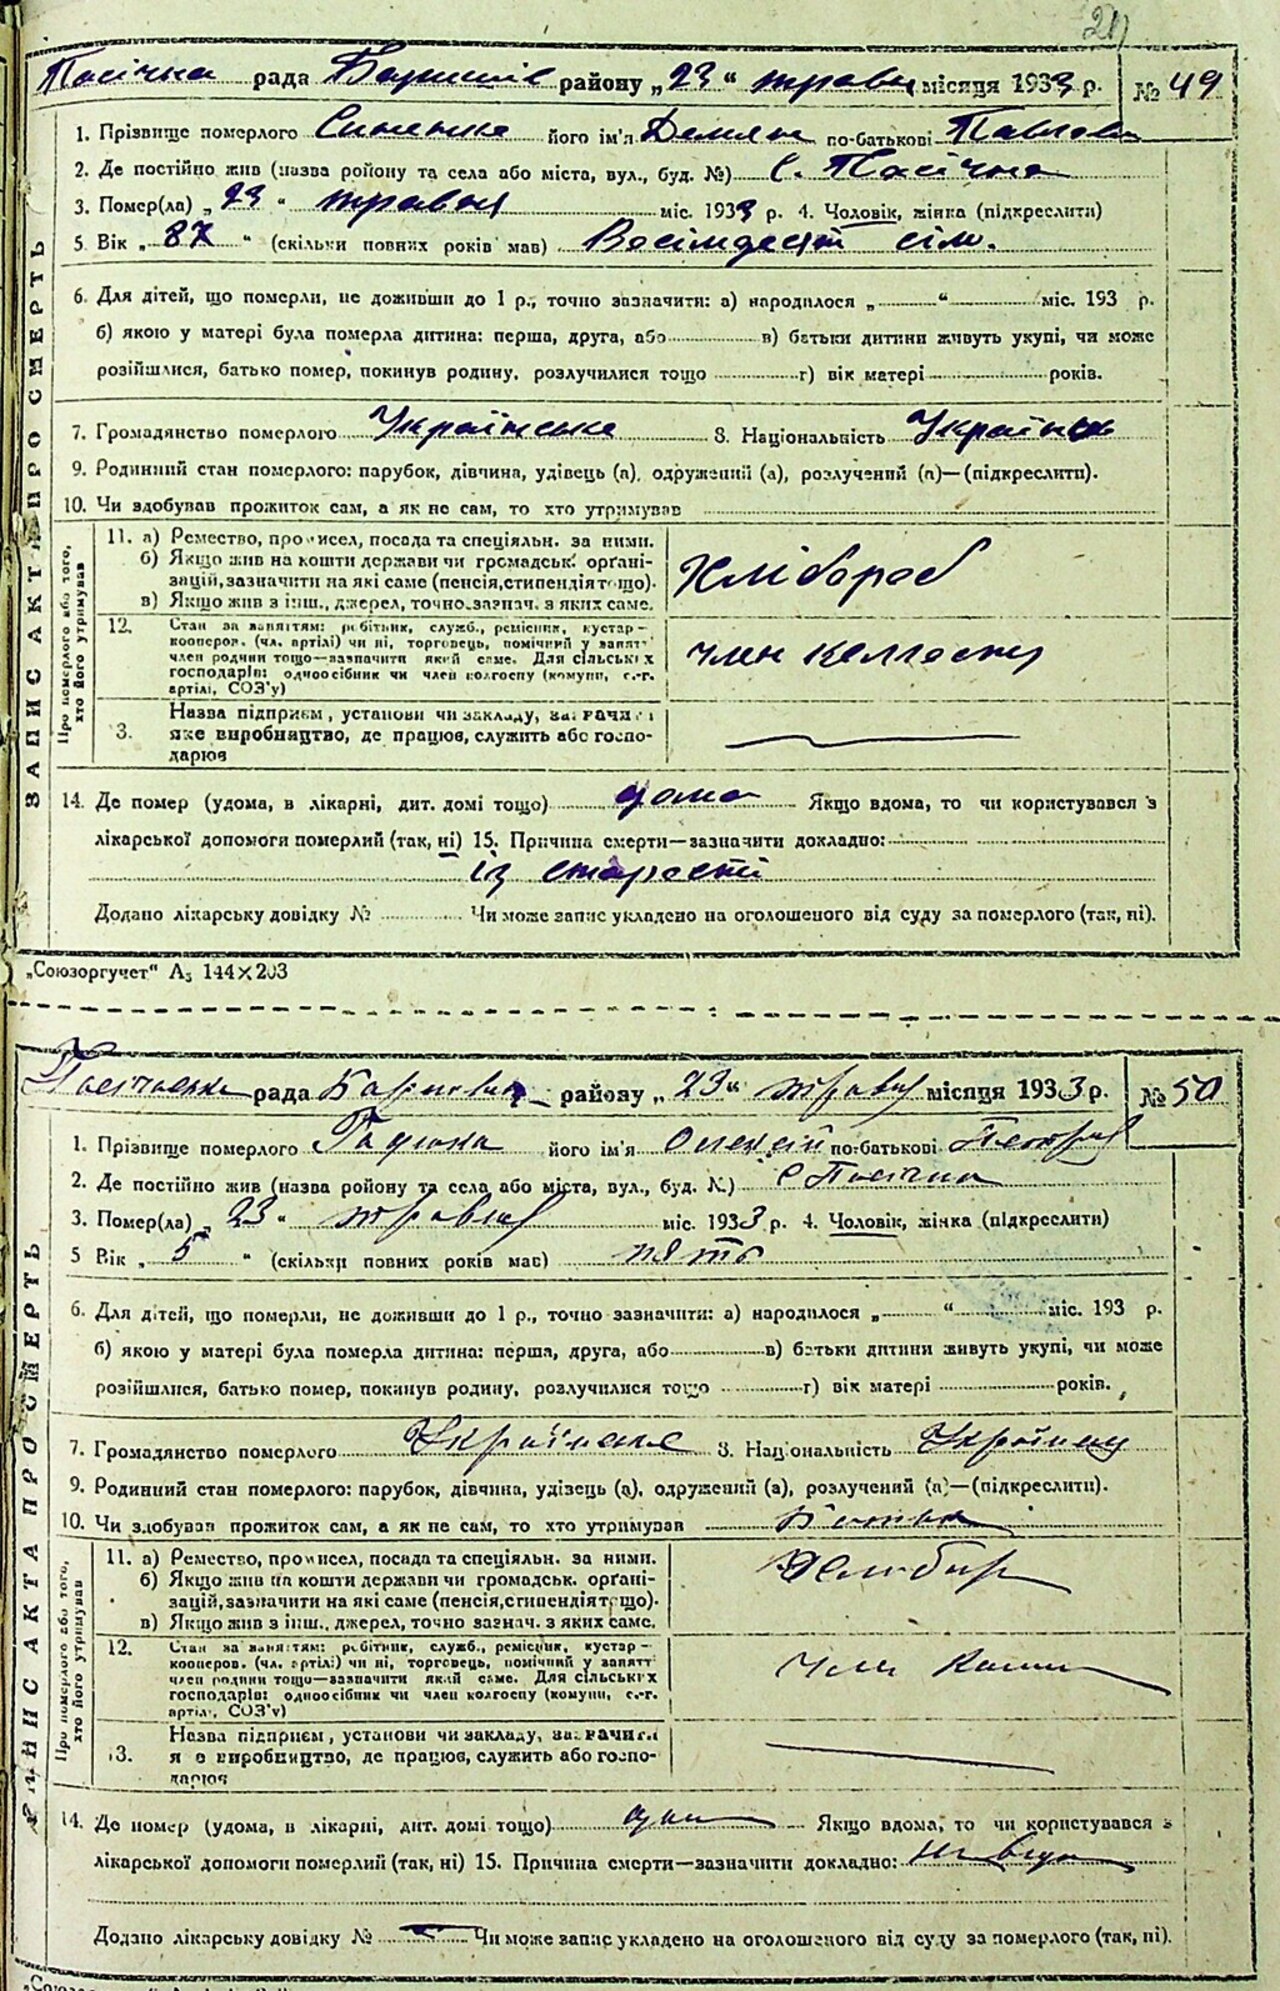 21
Пасічна рада Баришів району „23“ травня місяця 1933 р. № 49
1. Прізвище померлого Синенко його ім'я Демян по-батькові Павлович
2. Де постійно жив (назва району та села або міста, вул., буд. №) С. Пасічна
3. Помер(ла) „23“ травня міс. 1933 р. 4. Чоловік, жінка (підкреслити)
5. Вік „87“ (скільки повних років мав) Восімдесят сім.
6. Для дітей, що померли, не доживши до 1 р., точно зазначити: а) народилося „ “ міс. 193 р.
б) якою у матері була померла дитина: перша, друга, або в) батьки дитини живуть укупі, чи може
розійшлися, батько помер, покинув родину, розлучилися тощо г) вік матері років.
7. Громадянство померлого Українське 8. Національність Українець
9. Родинний стан померлого: парубок, дівчина, удівець (а), одружений (а), розлучений (а)—(підкреслити).
10. Чи здобував прожиток сам, а як не сам, то хто утримував
ЗАПИС АКТА ПРО СМЕРТЬ
Про померлого або того, хто його утримував
11. а) Ремество, промисел, посада та спеціяльн. за ними.
б) Якщо жив на кошти держави чи громадськ. органі-
зацій, зазначити на які саме (пенсія, стипендія тощо).
в) Якщо жив з інш., джерел, точно зазнач. з яких саме.
Хлібороб
12. Стан за заняттям: робітник, служб., ремісник, кустар—
кооперов. (чл. артілі) чи ні, торговець, помічний у занятті
член родини тощо—зазначити який саме. Для сільських
господарів: одноосібник чи член колгоспу (комуни, с.-г.
артілі, СОЗ'у)
член колгоспу
13. Назва підприєм, установи чи закладу, зазначити
яке виробництво, де працює, служить або госпо-
дарює
14. Де помер (удома, в лікарні, дит. домі тощо) дома Якщо вдома, то чи користувався з
лікарської допомоги померлий (так, ні) 15. Причина смерти—зазначити докладно:
із старості
Додано лікарську довідку № Чи може запис укладено на оголошеного від суду за померлого (так, ні).
„Союзоргучет“ А₃ 144×203
рада району „23“ травня місяця 1933 р. № 50
1. Прізвище померлого його ім'я Олексій по-батькові
2. Де постійно жив (назва району та села або міста, вул., буд. №) С Пасічна
3. Помер(ла) „23“ травня міс. 1933 р. 4. Чоловік, жінка (підкреслити)
5 Вік „5“ (скільки повних років мав) пять
6. Для дітей, що померли, не доживши до 1 р., точно зазначити: а) народилося „ “ міс. 193 р.
б) якою у матері була померла дитина: перша, друга, або в) батьки дитини живуть укупі, чи може
розійшлися, батько помер, покинув родину, розлучилися тощо г) вік матері років.
7. Громадянство померлого Українське 8. Національність Українец
9. Родинний стан померлого: парубок, дівчина, удівець (а), одружений (а), розлучений (а)—(підкреслити).
10. Чи здобував прожиток сам, а як не сам, то хто утримував Батько
ЗАПИС АКТА ПРО СМЕРТЬ
Про померлого або того, хто його утримував
11. а) Ремество, промисел, посада та спеціяльн. за ними.
б) Якщо жив на кошти держави чи громадськ. органі-
зацій, зазначити на які саме (пенсія, стипендія тощо).
в) Якщо жив з інш., джерел, точно зазнач. з яких саме.
12. Стан за заняттям: робітник, служб., ремісник, кустар—
кооперов. (чл. артілі) чи ні, торговець, помічний у занятті
член родини тощо—зазначити який саме. Для сільських
господарів: одноосібник чи член колгоспу (комуни, с.-г.
артілі, СОЗ'у)
член
13. Назва підприєм, установи чи закладу, зазначити
яке виробництво, де працює, служить або госпо-
дарює
14. Де помер (удома, в лікарні, дит. домі тощо) Якщо вдома, то чи користувався з
лікарської допомоги померлий (так, ні) 15. Причина смерти—зазначити докладно:
Додано лікарську довідку № Чи може запис укладено на оголошеного від суду за померлого (так, ні).